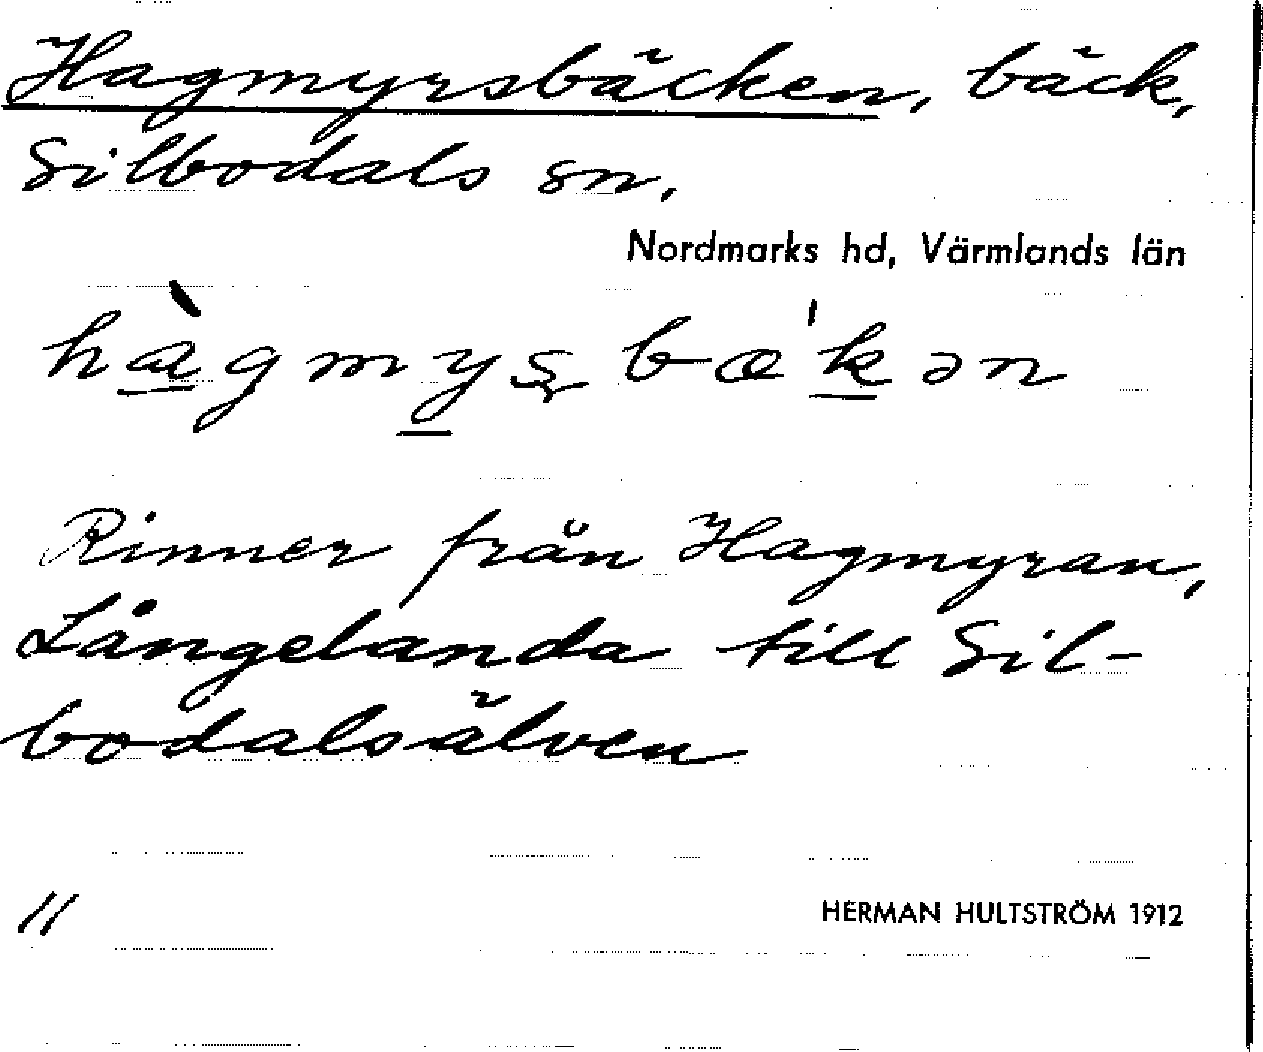 Hagmyrsbäcken, bäck,
Silbodals sn.
Nordmarks hd, Värmlands län
hàgmyʂbæ'kən
Rinner från Hagmyran,
Långelanda till Sil-
bodalsälven
11
HERMAN HULTSTRÖM 1912